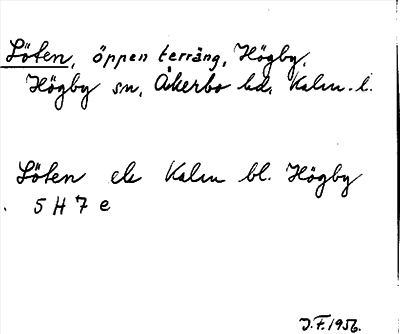 Löten, öppen terräng, Högby,
Högby sn, Åkerbo hd, Kalm. l.
Löten ek Kalm bl. Högby
5 H 7 e
J.F. 1956.